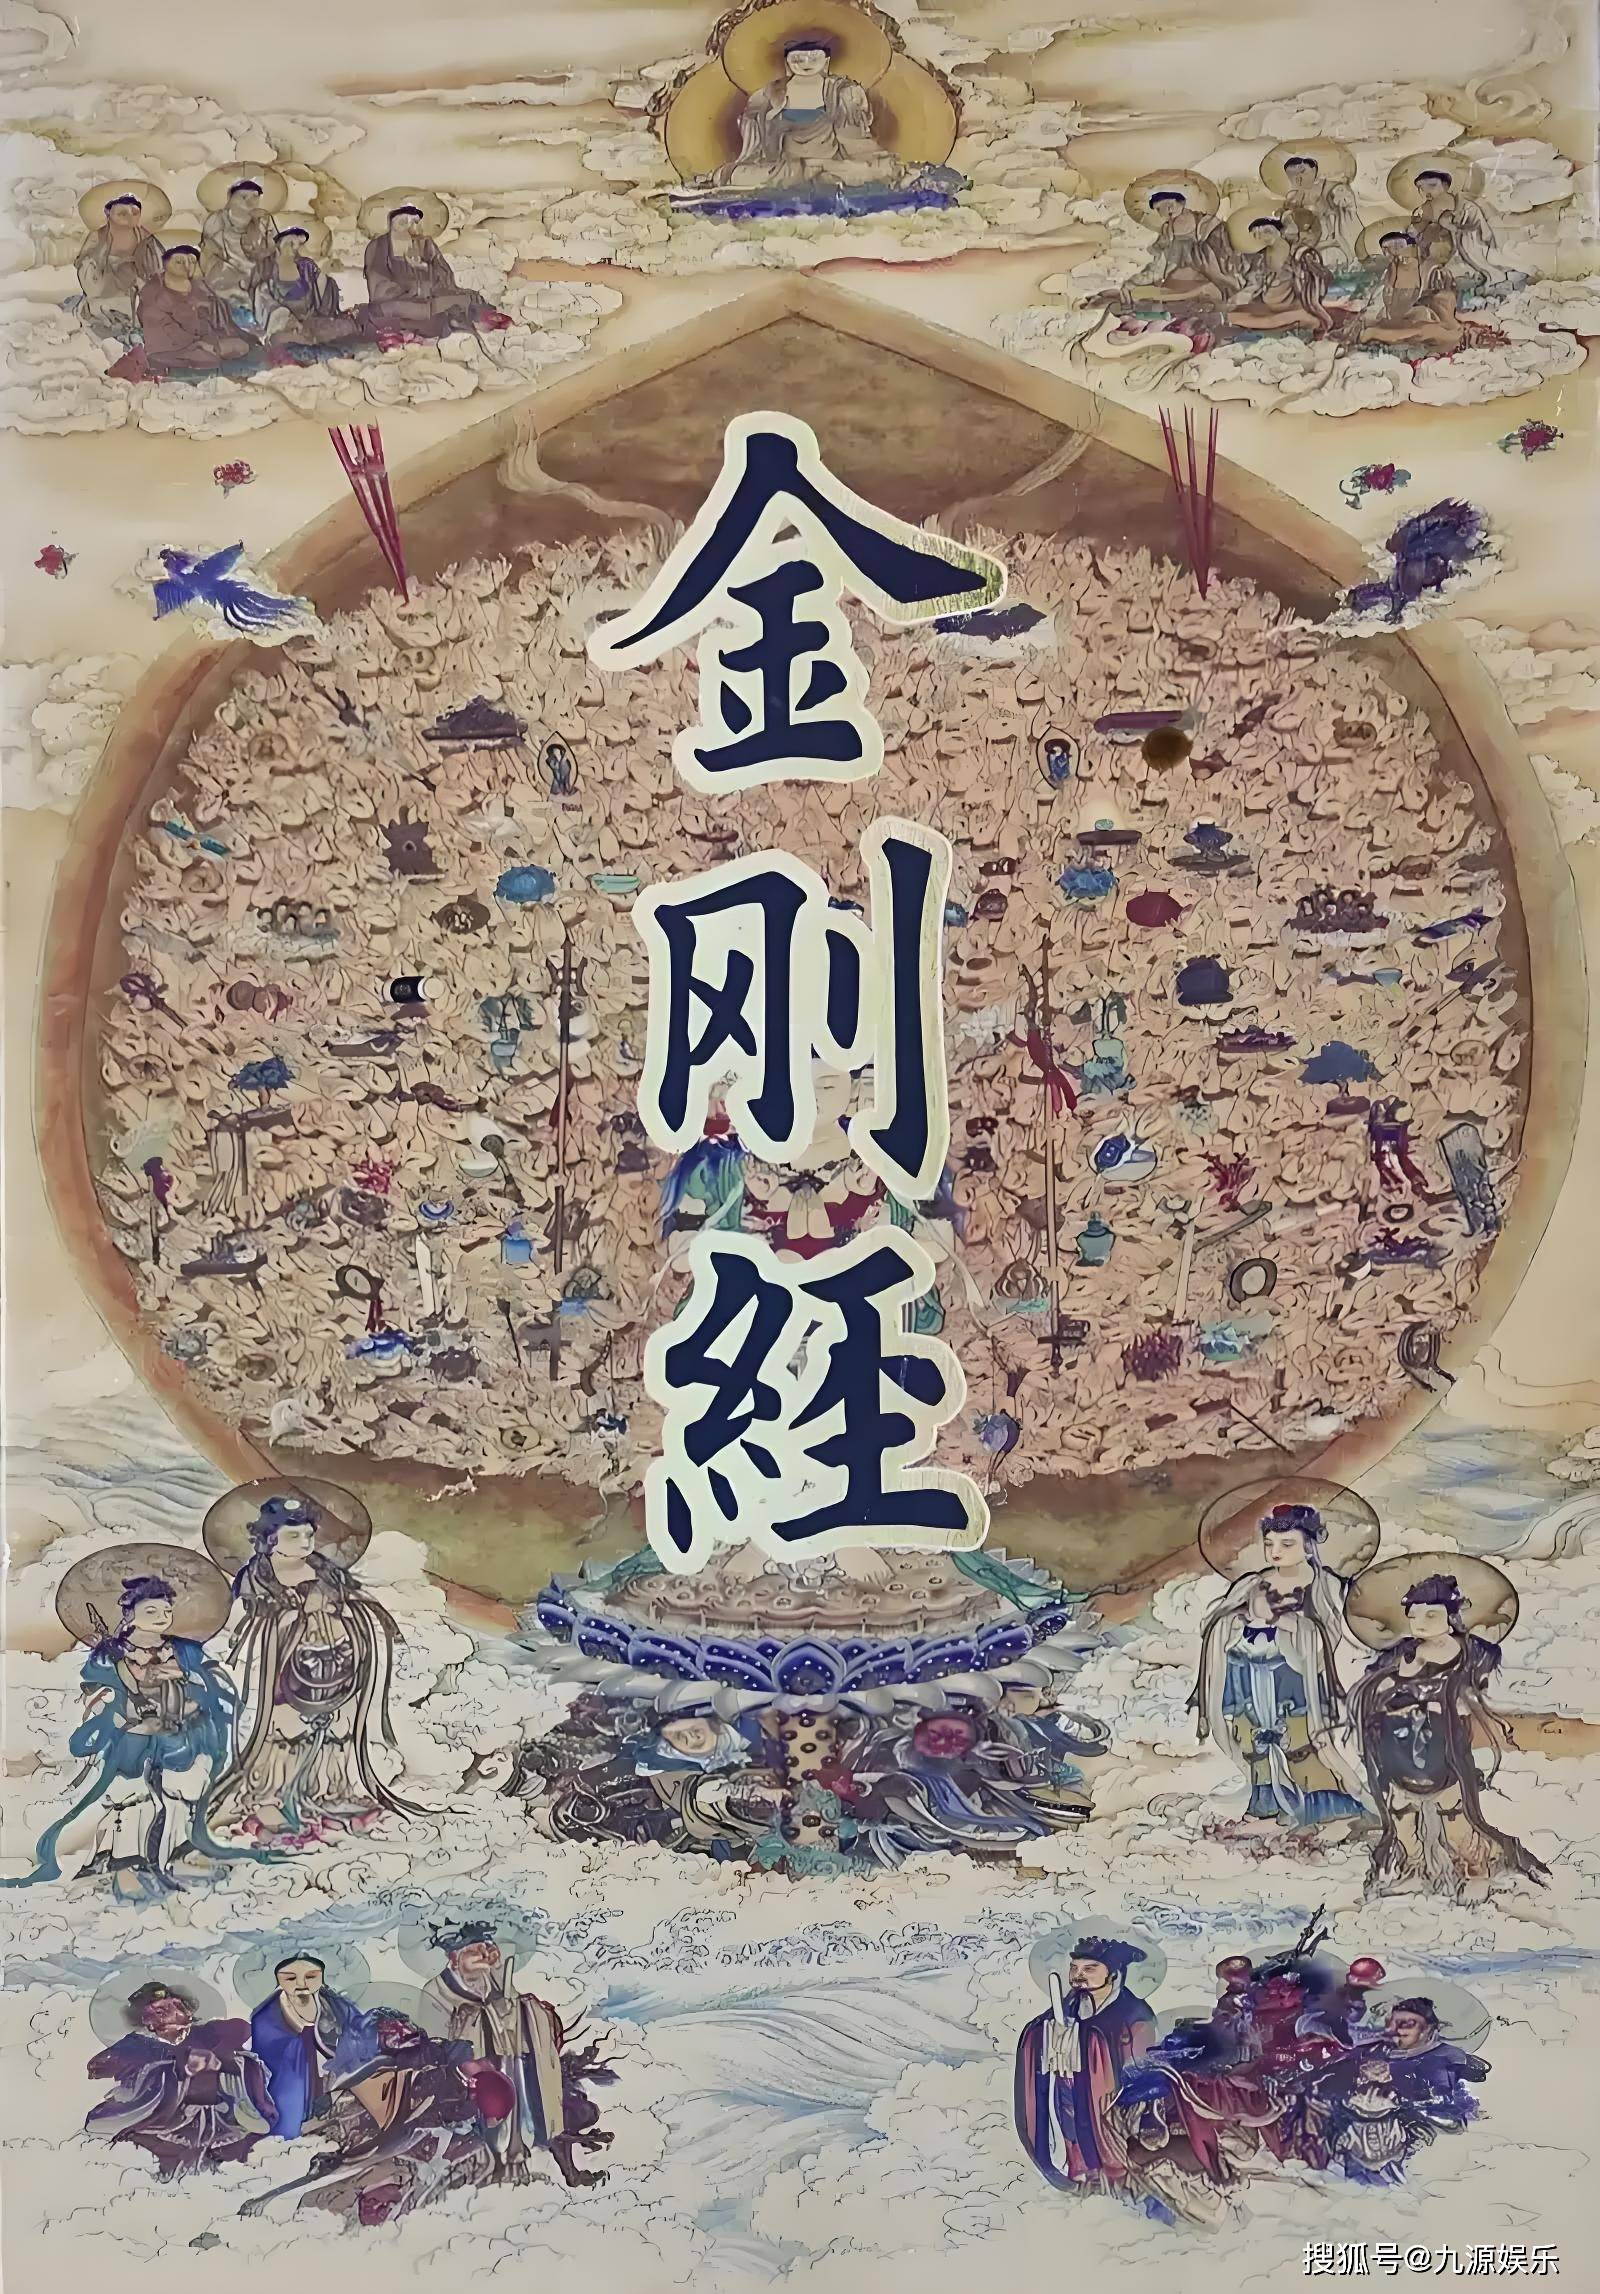 金刚經
搜狐号@九源娱乐